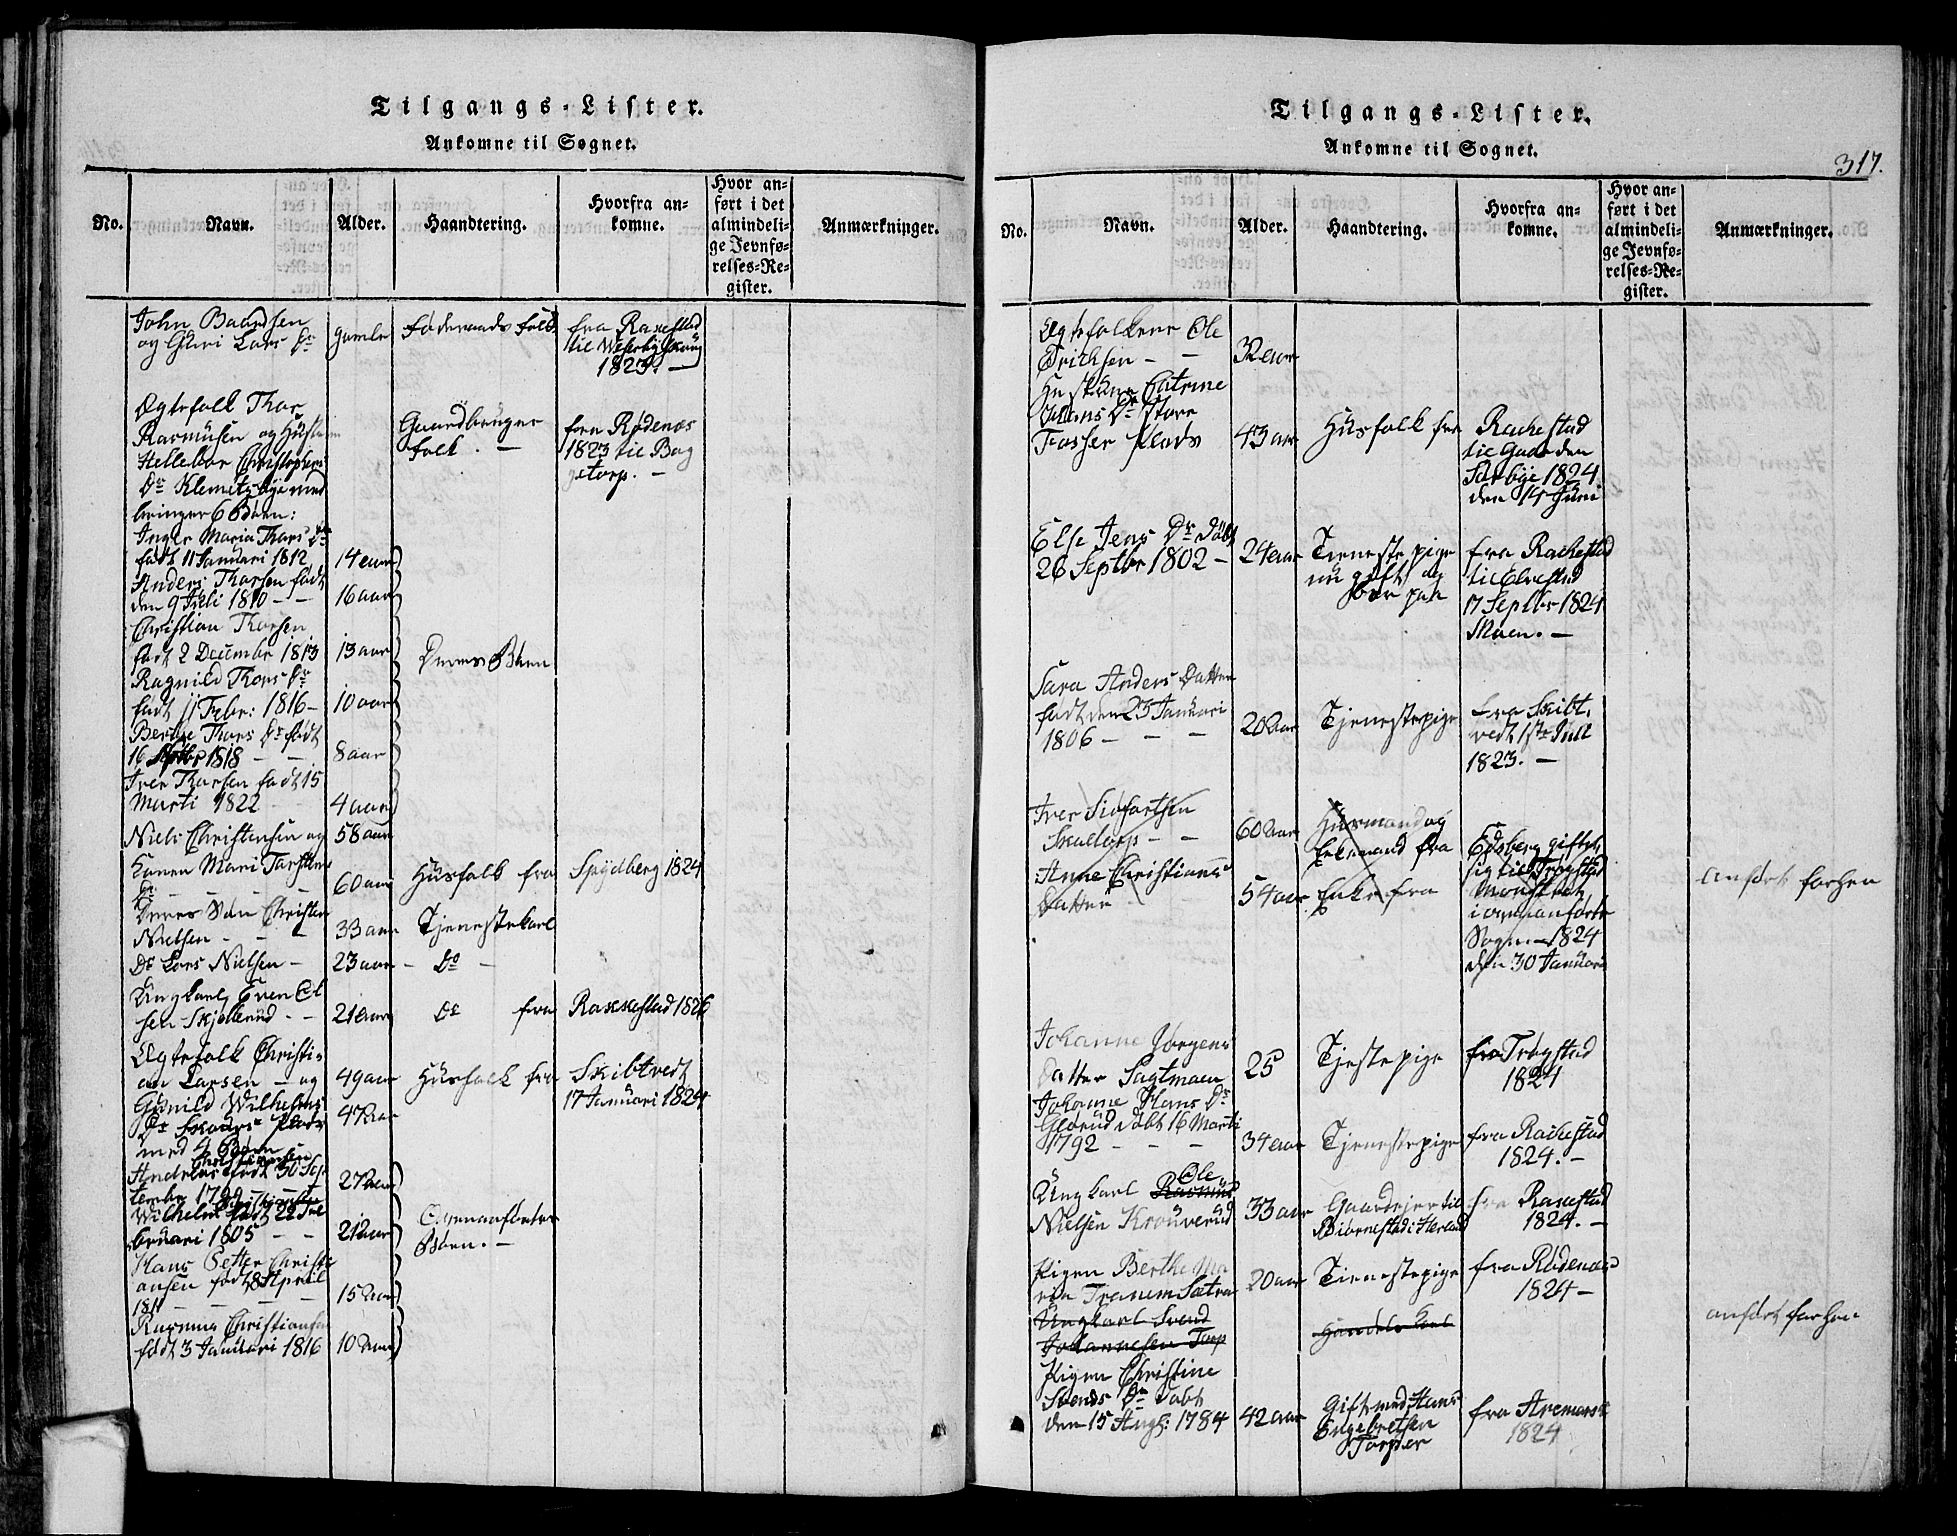 Tilgangs-Lister.
Ankomne til Sognet.
No.
Navn.
Alder.
Haandtering.
Hvorfra an-
komne.
Hvor an-
ført i det
almindeli-
ge Jevnfø-
relses-Re-
gister.
Anmærkninger.
John Baardsen
og Guri Lars Dr
gamle
Føderaads folk
fra Raxestad
til
1823. —
Ægtefolk Thor
Rasmusen og Hustru
Hellebor Christophers
Dr Klemetzbye med
bringer 6 Børn:
Gaardbruger
folk. —
fra Rødenæs
1823 til Bag
getorp. —
Inger Maria Thors Dr
født 11 Januari 1812
14 aar
Anders Thorsen født
den 9 Juli 1810 — —
16 aar
Christian Thorsen
født 2 Decembr 1813
13 aar
Deres Børn
Ragnild Thors Dr
født 11 Febr: 1816 —
10 aar
Berthe Thors Dr født
16 Septbr 1818 — —
8 aar
Iver Thorsen født 15
Marti 1822
4 aar
Niels Christensen og
58 aar
Konen Mari Torstens
Dr — — — —
60 aar
Husfolk fra
Spydberg 1824
Deres Søn Christen
Nielsen — — —
33 aar
Tjenestekarl
Do Lars Nielsen —
23 aar
— Do —
Ungkarl Even Ol
sen Skjellerud — —
21 aar
Do fra
Raxkestad 1826
Ægtefolk Christi-
an Larsen — og
49 aar
Husfolk fra
Skibtvedt
17 Januari 1824
Gunild Wilhelms
Dr Skaars Plads
47 aar
med 4 Børn
Christiansen
Andreas født 30 Sep
tembr 1799 —
27 aar
Christiansen
Wilhelm født 22 Fe
bruari 1805 — —
21 aar
Ovenanførtes
Børn. —
Hans Petter Christi
ansen født 8 April
1811 — — — —
15 aar
Rasmus Christiansen
født 3 Januari 1816
10 aar
Tilgangs-Lister.
Ankomne til Sognet.
317.
No.
Navn.
Alder.
Haandtering.
Hvorfra an-
komne.
Hvor an-
ført i det
almindeli-
ge Jevnfø-
relses-Re-
gister.
Anmærkninger.
Ægtefolkene Ole
Erichsen — —
32 aar
Hustrue Catrine
Johans Dr Store
Fosser Plads
43 aar
Husfolk fra
Rachestad
til Gaarden
Sarbye 1824
den 14 Juni
Else Jens Dr Døbt
26 Septbr 1802 —
24 aar
Tieneste pige
nu gift og
boer paa
fra Rachestad
til Elvestad
17 Septbr 1824
Moen. —
Sara Anders Datter
født den 23 Januari
1806 — — —
20 aar
Tjenestepige
fra Skibt-
vedt 1ste Juli
1823. —
Iver Siofortsen
Skaltorp — —
60 aar
Husmand og
Enkemand fra
Edsberg giftet
sig til Trøgstad
Anne Christians
Datter
54 aar
Enke fra
i ovenanførte
Sogn — 1824
den 30 Januari
anført forhen
Johanne Jørgens
Datter Sagtmoen
25
Tjestepige
fra Trøgstad
1824
Johanne Hans Dr
Glorud Døbt 16 Marti
1792 — — —
34 aar
Tjenestepige
fra Rachestad
1824. —
Ole
Ungkarl Rasmus
Nielsen Krouverud
33 aar
Gaardejer til
Biørnestad i Herland
fra Raxestad
1824. —
Pigen Berthe Ma
ria Sætra
20 aar
Tienestepige
fra Rødenæs
1824 —
Ungkarl Svend
Johannesen Torp
Handels Karl
anført forhen
Pigen Christine
Svends Dr Døbt
den 15 Aug: 1784
42 aar
Gift med Hans
Engebretsen
Torper
fra Aremark
1824